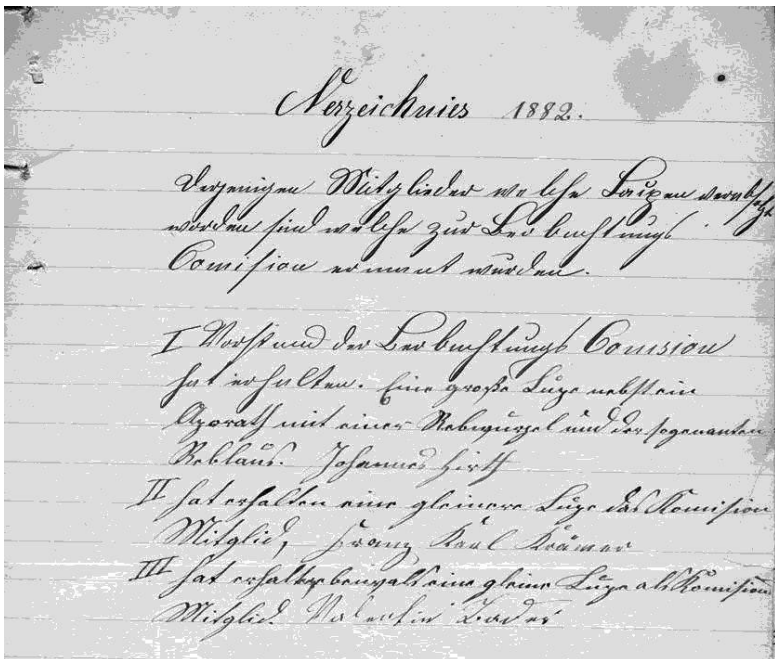 Verzeichnies 1882.
Derjenigen Mitglieder welche Luupen verabfolgt
worden sind welche zur Beobachtungs
Comision ernannt wurden.
I Vorstand der Beobachtungs Comision
hat erhalten. Eine große Lupe nebst ein
Aparath mit einer Rebwurzel und der sogenanten
Reblaus. Johannes Hirth
II hat erhalten eine gleinere Lupe das Komision
Mitglid, Franz Karl Krämer
III hat erhalten ebenvals eine gleine Lupe als Komision
Mitglid. Valentin Bader